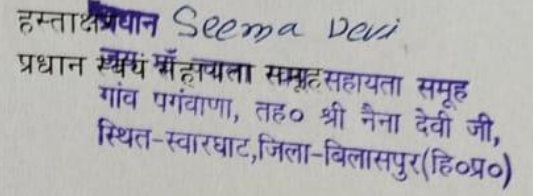 हस्ताक्षर प्रधान Seema Devi
प्रधान स्वयं सहायता समूह सहायता समूह
गांव पगंवाणा, तह० श्री नैना देवी जी,
स्थित-स्वारघाट,जिला-बिलासपुर(हि०प्र०)